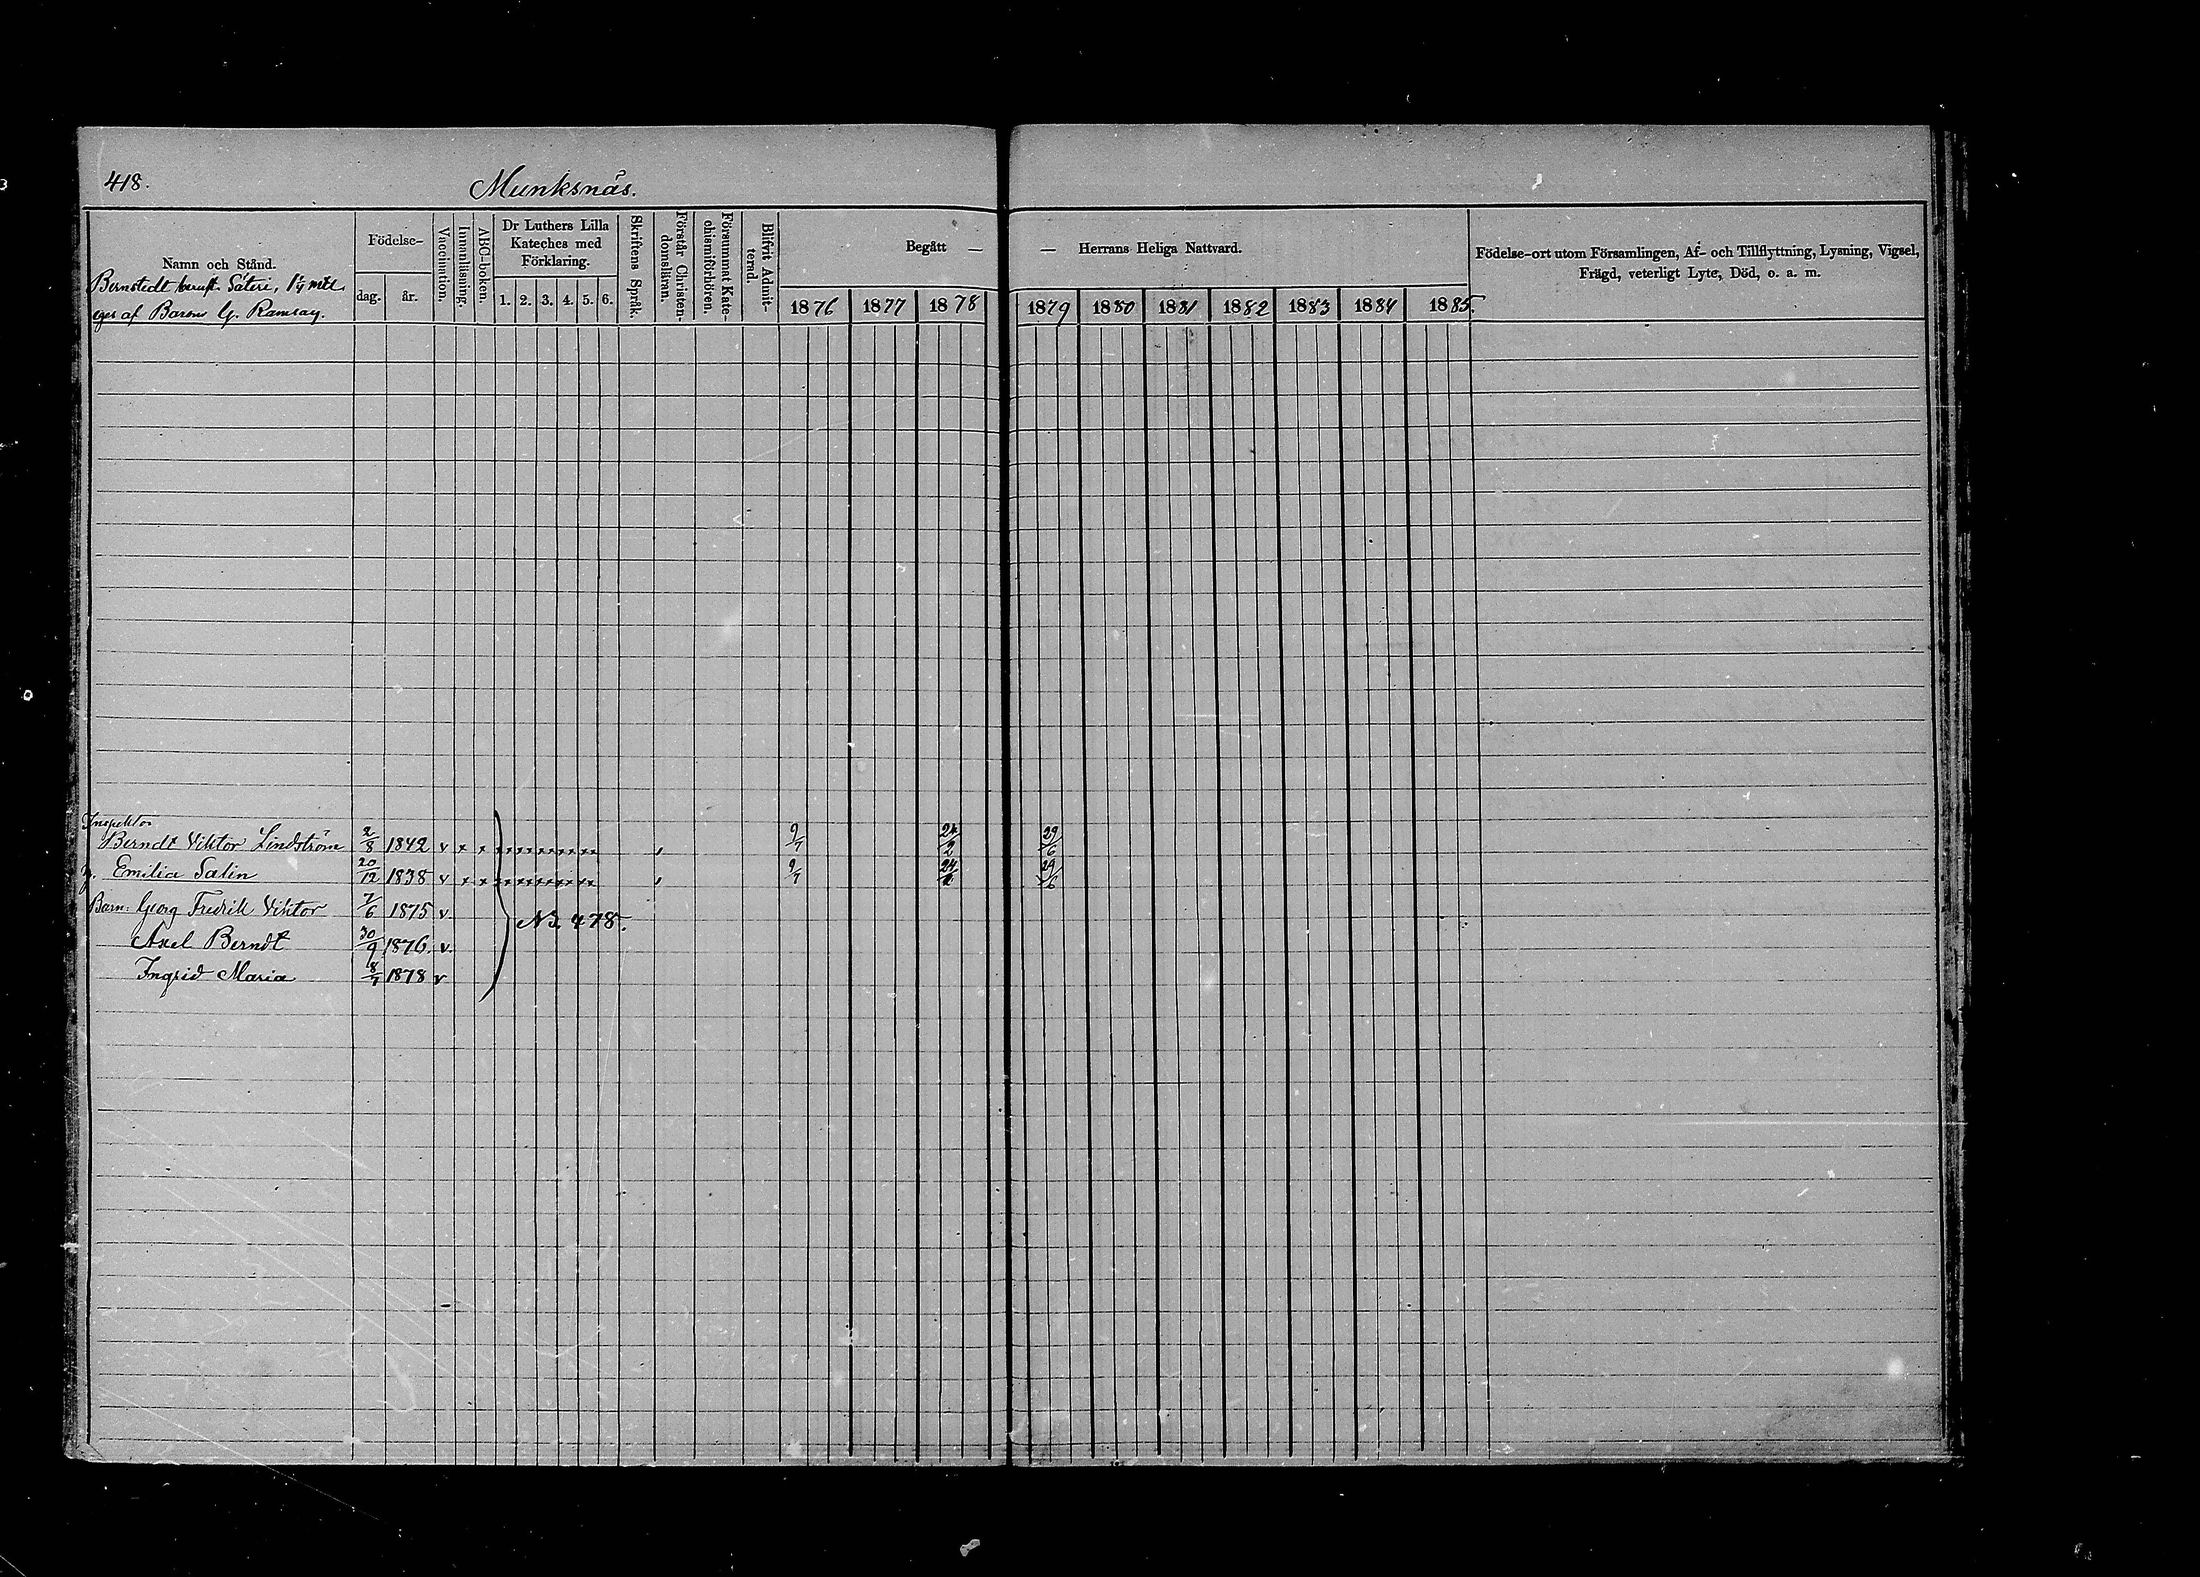 418.
Munksnäs.
Namn och Stånd.
Bernstedt Säteri, 1 1/4 mtl.
eges af Baron G. Ramsay.
Födelse-
dag. år.
Vaccination.
Innanläsning.
ABC-boken.
Dr Luthers Lilla
Kateches med
Förklaring.
1. 2. 3. 4. 5. 6.
Skriftens Språk.
Förstår Christen-
domsläran.
Försummat Kate-
chismiförhören.
Blifvit Admit-
terad.
Begått — — Herrans Heliga Nattvard.
1876 1877 1878 1879 1880 1881 1882 1883 1884 1885.
Födelse-ort utom Församlingen, Af- och Tillflyttning, Lysning, Vigsel,
Frägd, veterligt Lyte, Död, o. a. m.
Inspektor
Berndt Viktor Lindström 2/8 1842 v x x 9/7 24/2 29/6
Emilia Salin 20/12 1838 v x x 9/7 24/2 29/6
Barn: Georg Fredrik Viktor 7/6 1875 v.
NB. 478.
Axel Berndt 30/9 1876. v.
Ingrid Maria 8/7 1878 v